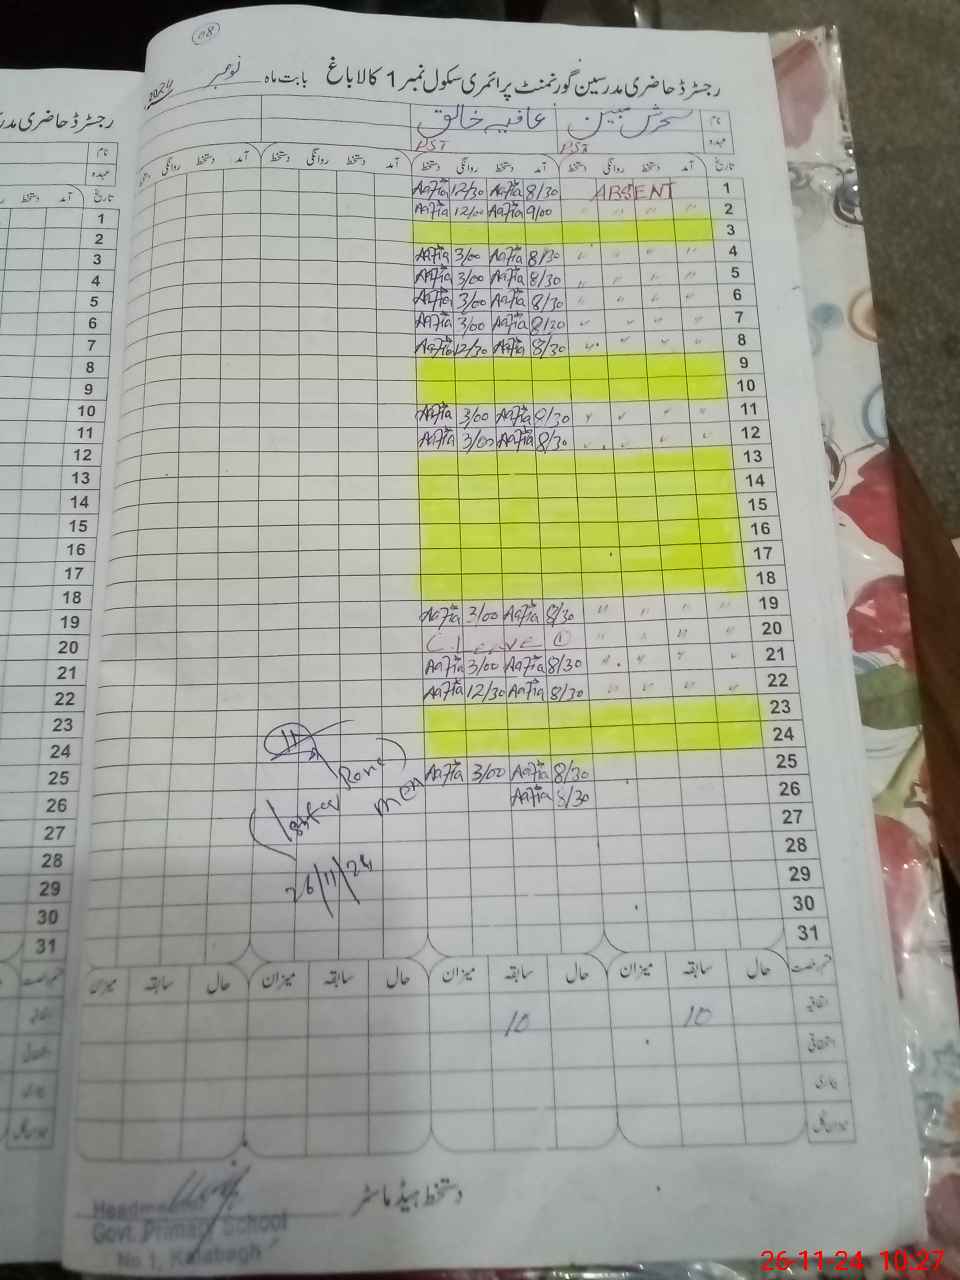 08
رجسٹرڈ حاضری مدرسین گورنمنٹ پرائمری سکول نمبر 1 کالا باغ بابت ماہ نومبر 2024
نام سحرش مبین عافیہ خالق
عہدہ PST PST
تاریخ آمد دستخط روانگی دستخط آمد دستخط روانگی دستخط آمد دستخط روانگی دستخط آمد دستخط روانگی
1 ABSENT 8/30 Aafia 12/30 Aafia
2 " " " " 9/00 Aafia 12/00 Aafia
3
4 " " " " 8/30 Aafia 3/00 Aafia
5 " " " " 8/30 Aafia 3/00 Aafia
6 " " " " 8/30 Aafia 3/00 Aafia
7 " " " " 8/30 Aafia 3/00 Aafia
8 " " " " 8/30 Aafia 12/30 Aafia
9
10
11 " " " " 8/30 Aafia 3/00 Aafia
12 " " " " 8/30 Aafia 3/00 Aafia
13
14
15
16
17
18
19 " " " " 8/30 Aafia 3/00 Aafia
20 " " " " C. Leave 1
21 " " " " 8/30 Aafia 3/00 Aafia
22 " " " " 8/30 Aafia 12/30 Aafia
23
24
25 8/30 Aafia 3/00 Aafia
26 8/30 Aafia
27
28
29
30
31
11
MEA
26/11/24
حال سابقہ میزان حال سابقہ میزان حال سابقہ میزان حال سابقہ میزان
10 10
دستخط ہیڈ ماسٹر
Headmaster
Govt. Primary School
No 1, Kalabagh
رجسٹرڈ حاضری مدر
نام
عہدہ
تاریخ آمد دستخط
1
2
3
4
5
6
7
8
9
10
11
12
13
14
15
16
17
18
19
20
21
22
23
24
25
26
27
28
29
30
31
26-11-24 10:27